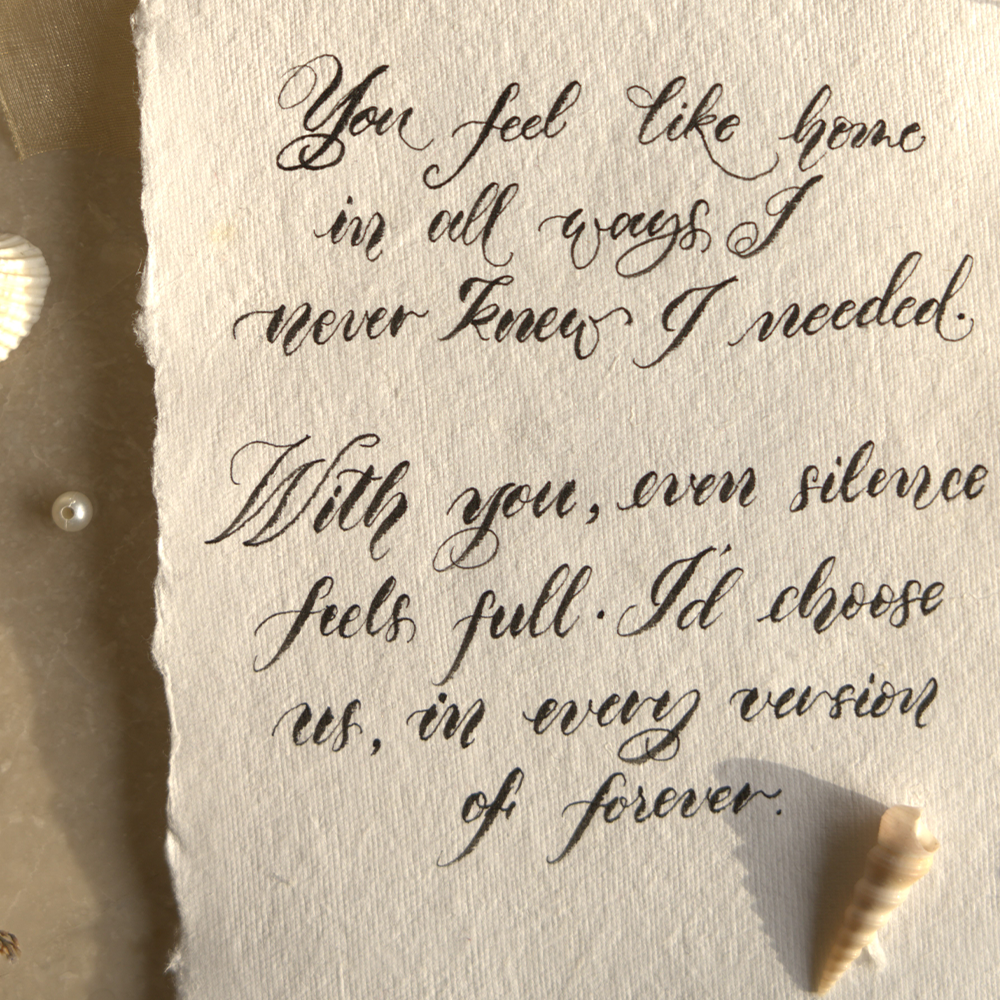 You feel like home
in all ways I
never knew I needed.
With you, even silence
feels full. I'd choose
us, in every version
of forever.